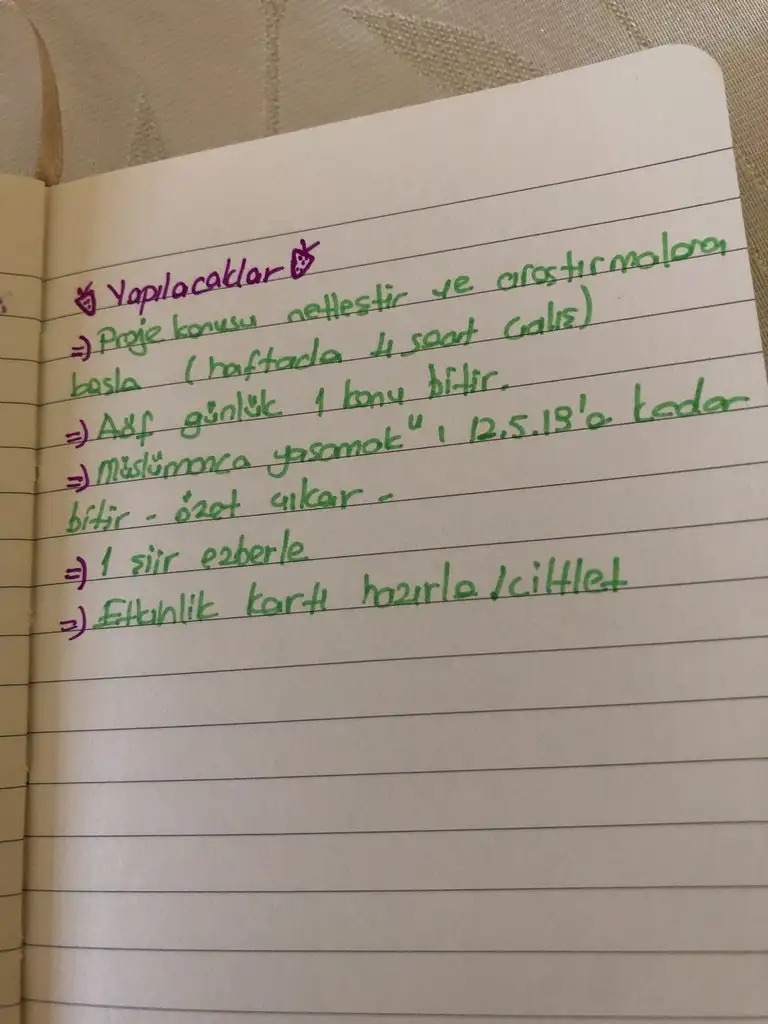 Yapılacaklar
=) Proje konusu netleştir ve araştırmalara
başla (haftada 4 saat çalış)
=) Aöf günlük 1 konu bitir.
=) Müslümanca yaşamak" ı 12.5.19'a kadar
bitir - özet çıkar -
=) 1 şiir ezberle
=) Etkinlik kartı hazırla / ciltlet